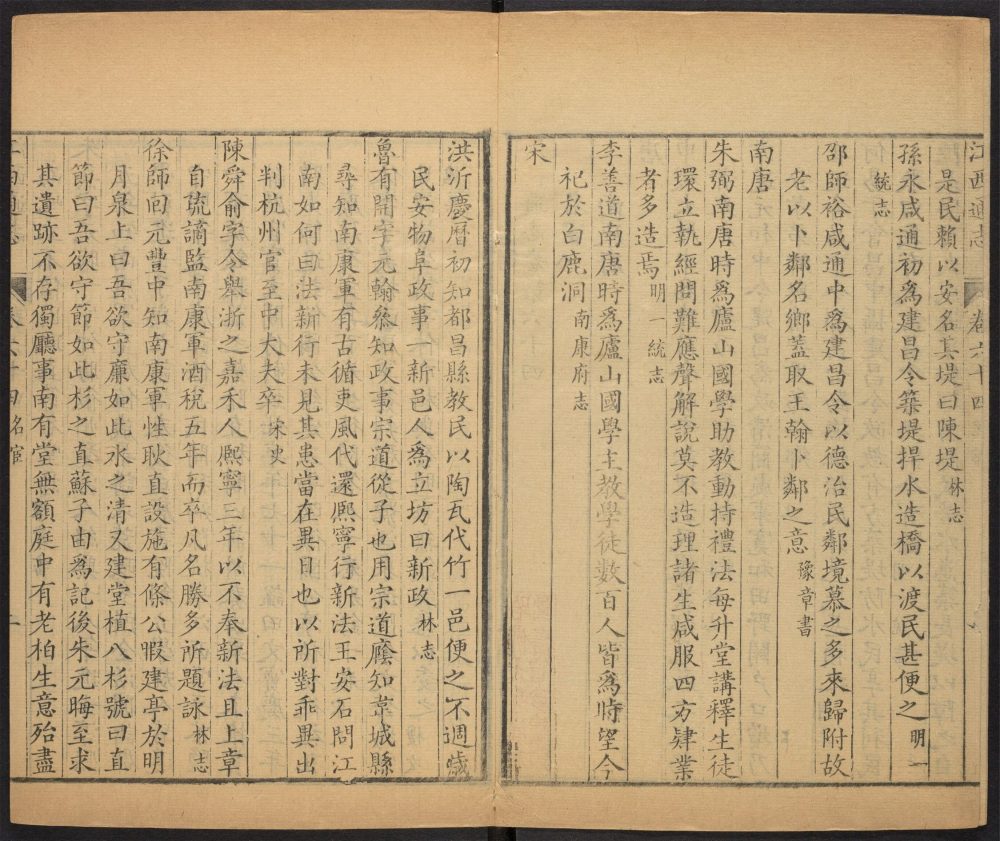 江西通志 卷六十四
是民賴以安名其堤曰陳堤林志
孫永咸通初爲建昌令築堤捍水造橋以渡民甚便之明一
統志
邵師裕咸通中爲建昌令以德治民鄰境慕之多來歸附故
老以卜鄰名鄉蓋取王翰卜鄰之意豫章書
南唐
朱弼南唐時爲廬山國學助教動持禮法每升堂講釋生徒
環立執經問難應聲解說莫不造理諸生咸服四方肄業
者多造焉明一統志
李善道南唐時爲廬山國學主教學徒數百人皆爲時望今
祀於白鹿洞南康府志
宋
洪沂慶曆初知都昌縣教民以陶瓦代竹一邑便之不週歲
民安物阜政事一新邑人爲立坊曰新政林志
魯有開字元翰叅知政事宗道從子也用宗道廕知韋城縣
尋知南康軍有古循吏風代還熙寧行新法王安石問江
南如何曰法新行未見其患當在異日也以所對乖異出
判杭州官至中大夫卒宋史
陳舜俞字令舉浙之嘉禾人熙寧三年以不奉新法且上章
自疏謫監南康軍酒稅五年而卒凡名勝多所題詠林志
徐師回元豐中知南康軍性耿直設施有條公暇建亭於明
月泉上曰吾欲守廉如此水之清又建堂植八杉號曰直
節曰吾欲守節如此杉之直蘇子由爲記後朱元晦至求
其遺跡不存獨廳事南有堂無額庭中有老柏生意殆盡
江西通志 卷六十四 名宦 二